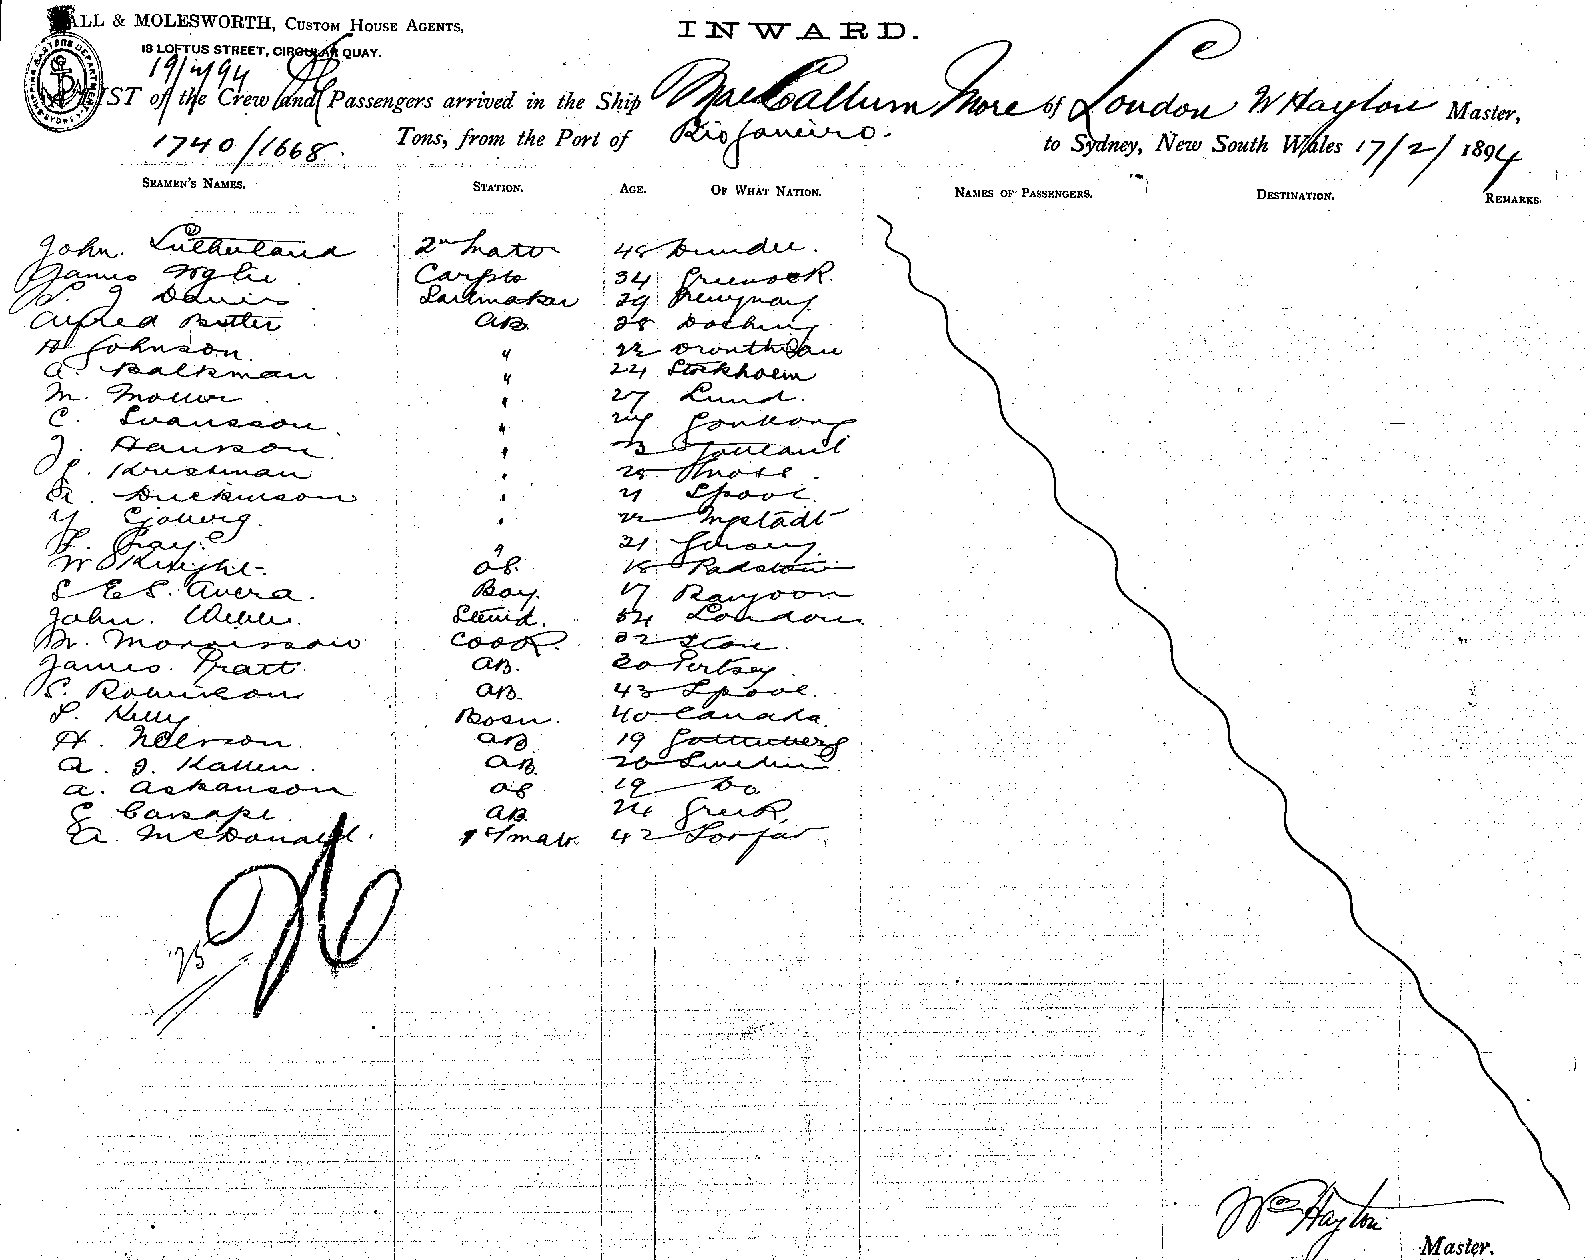 ALL & MOLESWORTH, CUSTOM HOUSE AGENTS,
INWARD.
18 LOFTUS STREET, CIRCULAR QUAY.
LIST of the Crew and Passengers arrived in the Ship MacCallum More of London W Hayton Master,
1740/1668. Tons, from the Port of Rio Janeiro. to Sydney, New South Wales 17/2/1894
SEAMEN'S NAMES. STATION. AGE. OF WHAT NATION. NAMES OF PASSENGERS. DESTINATION. REMARKS.
John. Sutherland 2nd Mate 48 Dundee.
James Wylie Carptr 34 Greenock.
J Davies Sailmaker 39
Alfred Butler AB. 28 Docking
Johnson. " 22
A. Balkman " 24 Stockholm
M. Moller " 27 Lund.
C. Svensson. "
J. Hanson. "
Kristman "
A. Dickinson " 21 Lpool.
Y. Sjoberg. " 22
F. Gray. " 21 Jersey.
W Knight. OS. 18 Padstow
S E S. Avera. Boy. 17 Rangoon
John. Webb. Stewd. 54 London.
M. Morrisson Cook. 32
James. Pratt. AB. 20
Robinson AB 43 Lpool.
Kelly Bosn. 40 Canada.
H. Neilson. AB 19 Gottenberg
A. J. Kallen. AB. 20 Sweden.
A. Askanson OS 19 Do
AB. 24 Greek.
A. McDonald. 1st mate 42 Forfar.
25
Wm Hayton
Master.